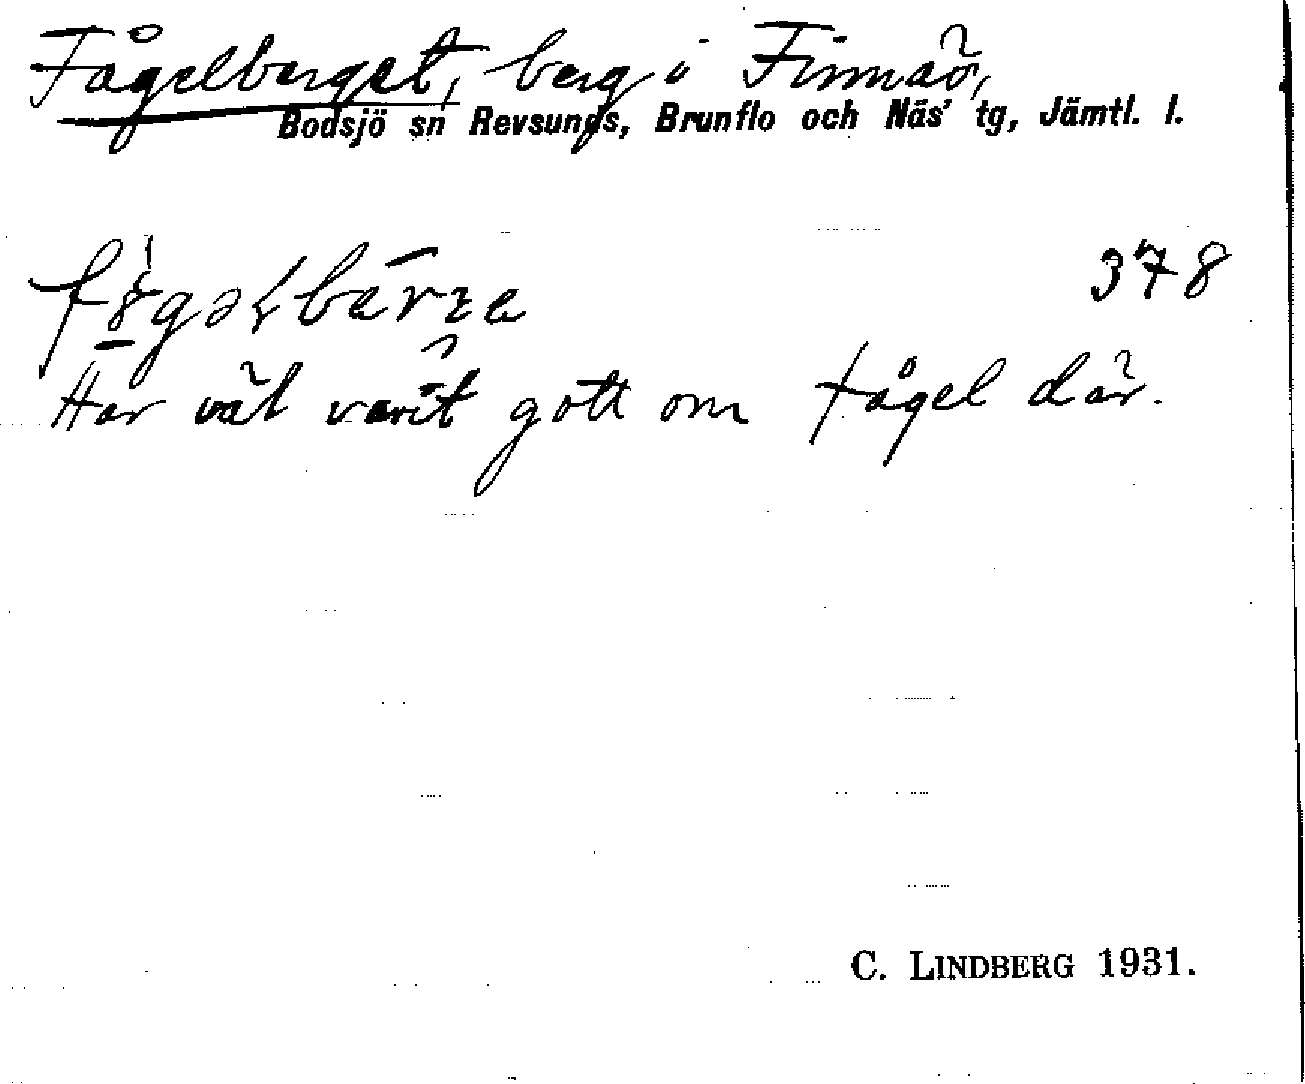 Fågelberget, berg i Finnsö,
Bodsjö sn Revsunds, Brunflo och Näs' tg, Jämtl. l.
378
Har väl varit gott om fågel där.
C. LINDBERG 1931.